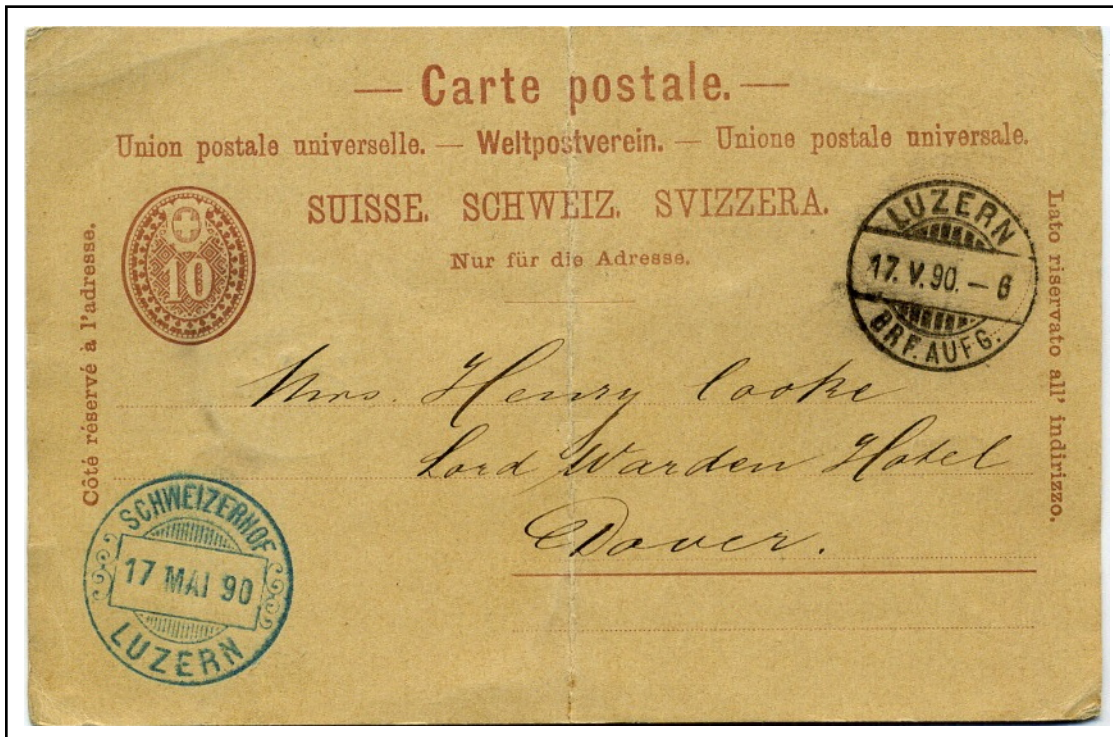 — Carte postale. —
Union postale universelle. — Weltpostverein. — Unione postale universale.
SUISSE. SCHWEIZ. SVIZZERA.
Nur für die Adresse.
10
Côté réservé à l'adresse.
Lato riservato all' indirizzo.
LUZERN
17. V. 90. – 6
BRF. AUFG.
Mrs. Henry Cooke
Lord Warden Hotel
Dover.
SCHWEIZERHOF
17 MAI 90
LUZERN